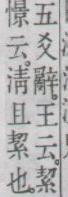 五爻辭王云絜
憬云。淸且絜也。